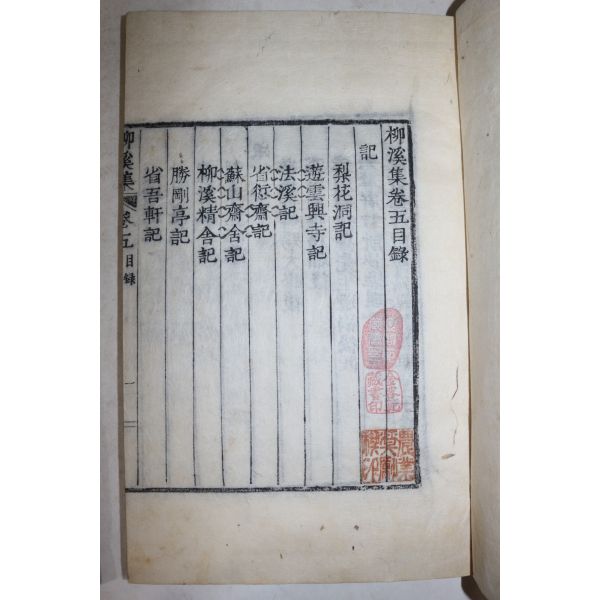 柳溪集卷五目錄
記
梨花洞記
遊雲興寺記
法溪記
省愆齋記
蘇山齋舍記
柳溪精舍記
勝剛亭記
省吾軒記
柳溪集 卷五目錄 一